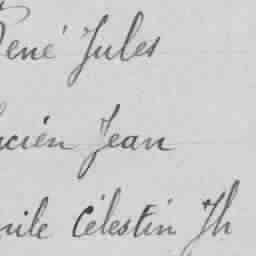 René Jules
Lucien Jean
Emile Célestin Jh